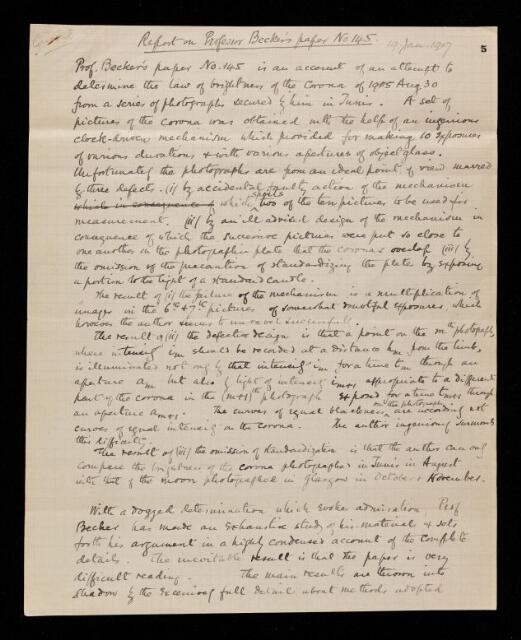 Report on Professor Becker's paper No 145.
19. Jan. 1907
5
Prof. Becker's paper No. 145 is an account of an attempt to
determine the law of brightness of the Corona of 1905 Aug 30
from a series of photographs secured by him in Tunis. A set of
pictures of the corona was obtained with the help of an ingenious
clock-driven mechanism which provided for making 10 exposures
of various durations & with various apertures of object glass.
Unfortunately the photographs are from an ideal point of view marred
by three defects. (i) by accidental faulty action of the mechanism
which in consequence of which spoils two of the ten pictures to be used for
measurement. (ii) by an ill advised design of the mechanism in
consequence of which the successive pictures were put so close to
one another on the photographic plate that the coronas overlap (iii) by
the omission of the precaution of standardizing the plate by exposing
a portion to the light of a standard candle.
The result of (i) the failure of the mechanism is a multiplication of
images in the 6th & 7th pictures of somewhat doubtful exposures which
however the author seems to unravel successfully.
The result of (ii) the defective design is that a point on the mth photograph,
where intensity im should be recorded at a distance hm from the limb,
is illuminated not only by that intensity im for a time tm through an
aperture am but also by light of intensity im+1 appropriate to a different
part of the corona in the (m+1)th photograph exposed for a time tm+1 through
an aperture am+1. The curves of equal blackness on the photographs are accordingly not
curves of equal intensity on the corona. The author ingeniously surmounts
this difficulty.
The result of (iii) the omission of standardization is that the author can only
compare the brightness of the corona photographed in Tunis in August
with that of the moon photographed in Glasgow in October & November.
With a dogged determination which evokes admiration, Prof
Becker has made an exhaustive study of his material & sets
forth his argument in a highly condensed account of the complete
details. The inevitable result is that the paper is very
difficult reading. The main results are thrown into
shadow by the excessively full detail about methods adopted